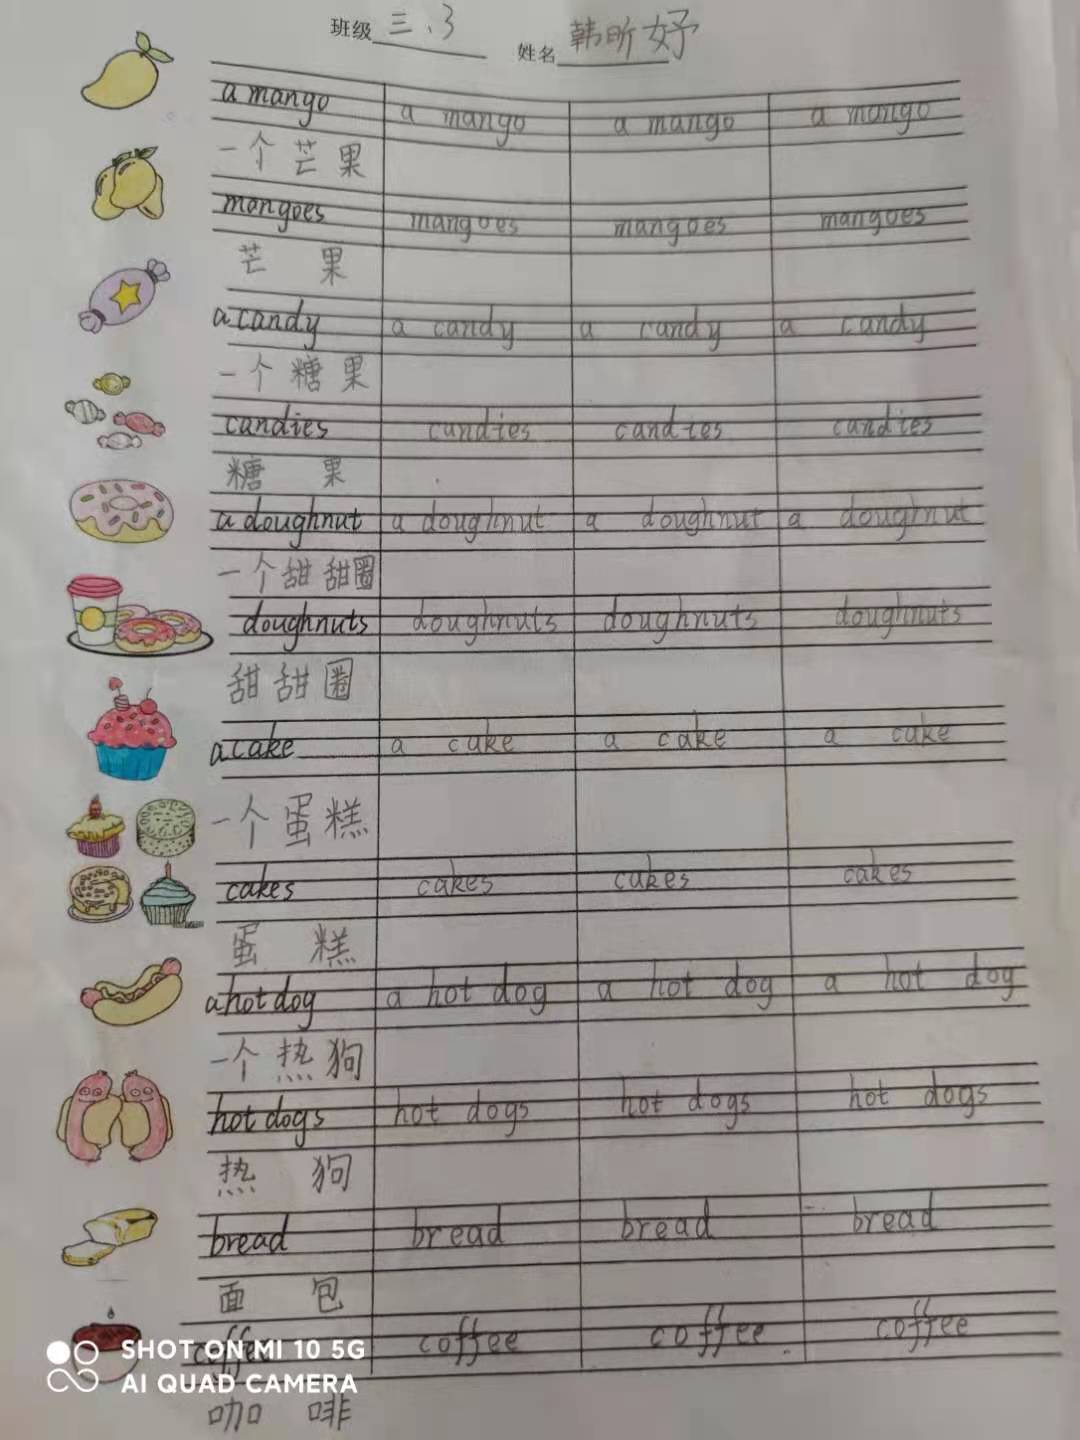 班级 三、3 姓名 韩昕妤
a mango a mango a mango a mango
一个芒果
mangoes mangoes mangoes mangoes
芒果
a candy a candy a candy a candy
一个糖果
candies candies candies candies
糖果
a doughnut a doughnut a doughnut a doughnut
一个甜甜圈
doughnuts doughnuts doughnuts doughnuts
甜甜圈
a cake a cake a cake a cake
一个蛋糕
cakes cakes cakes cakes
蛋糕
a hot dog a hot dog a hot dog a hot dog
一个热狗
hot dogs hot dogs hot dogs hot dogs
热狗
bread bread bread bread
面包
coffee coffee coffee coffee
咖啡
SHOT ON MI 10 5G
AI QUAD CAMERA